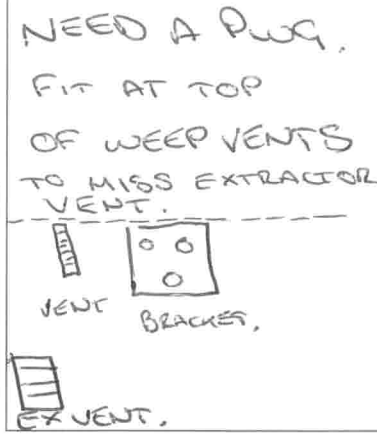 NEED A PLUG.
FIT AT TOP
OF WEEP VENTS
TO MISS EXTRACTOR
VENT.
VENT
BRACKET.
EX VENT.